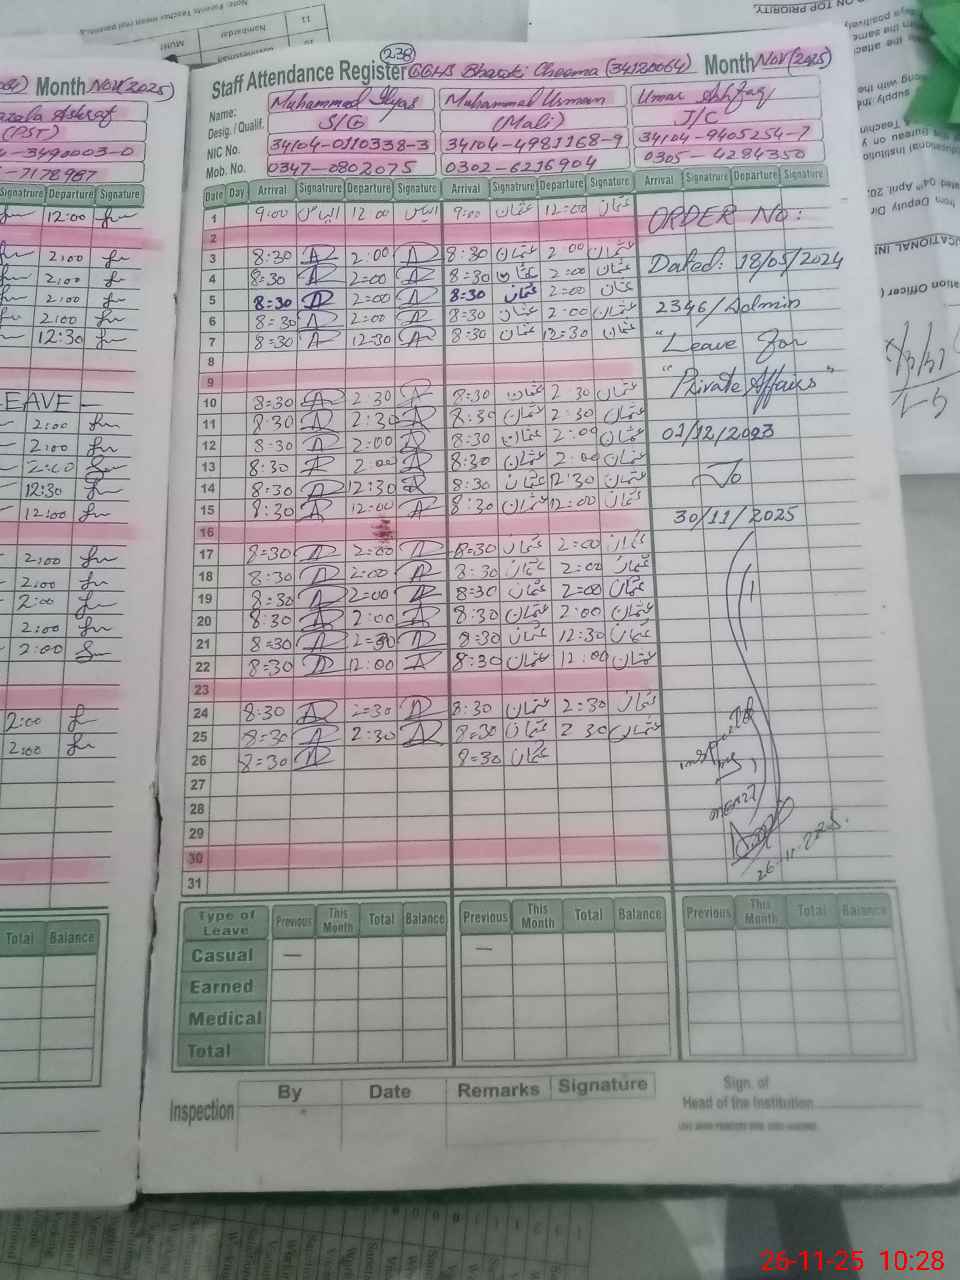 238
Staff Attendance Register GGHS Bharoki Cheema (34120064) Month Nov (2025)
Name: Muhammad Ilyas Muhammad Usman Umar Ashfaq
Desig. / Qualif. S/G (Mali) J/C
NIC No. 34104-0110338-3 34104-4981168-9 34104-9405254-7
Mob. No. 0347-0802075 0302-6216904 0305-4284350
Date Day Arrival Signatrure Departure Signature Arrival Signatrure Departure Signature Arrival Signatrure Departure Signature
1 9:00 الیاس 12:00 الیاس 9:00 عثمان 12:00 عثمان
ORDER No:
2
3 8:30 2:00 8:30 عثمان 2:00 عثمان
Dated: 18/05/2024
4 8:30 2:00 8:30 عثمان 2:00 عثمان
5 8:30 2:00 8:30 عثمان 2:00 عثمان
2346/Admin
6 8:30 2:00 8:30 عثمان 2:00 عثمان
7 8:30 12:30 8:30 عثمان 12:30 عثمان
"Leave for
8
9
"Private Affairs"
10 8:30 2:30 8:30 عثمان 2:30 عثمان
11 8:30 2:30 8:30 عثمان 2:30 عثمان
12 8:30 2:00 8:30 عثمان 2:00 عثمان
01/12/2023
13 8:30 2:00 8:30 عثمان 2:00 عثمان
14 8:30 12:30 8:30 عثمان 12:30 عثمان
To
15 8:30 12:00 8:30 عثمان 12:00 عثمان
30/11/2025
16
17 8:30 2:00 8:30 عثمان 2:00 عثمان
18 8:30 2:00 8:30 عثمان 2:00 عثمان
19 8:30 2:00 8:30 عثمان 2:00 عثمان
20 8:30 2:00 8:30 عثمان 2:00 عثمان
21 8:30 8:30 عثمان 12:30 عثمان
22 8:30 12:00 8:30 عثمان 12:00 عثمان
23
24 8:30 2:30 8:30 عثمان 2:30 عثمان
25 8:30 2:30 8:30 عثمان 2:30 عثمان
26 8:30 8:30 عثمان
27
28
29
26-11-2025.
30
31
Type of Leave Previous This Month Total Balance Previous This Month Total Balance Previous This Month Total Balance
Casual — —
Earned
Medical
Total
Inspection By Date Remarks Signature
Sign. of
Head of the Institution
Month Nov (2025)
(PST)
-3490003-0
-7178987
Signatrure Departure Signature
12:00
2:00
2:00
2:00
2:00
12:30
LEAVE
2:00
2:00
2:00
12:30
12:00
2:00
2:00
2:00
2:00
2:00
2:00
2:00
Total Balance
26-11-25 10:28